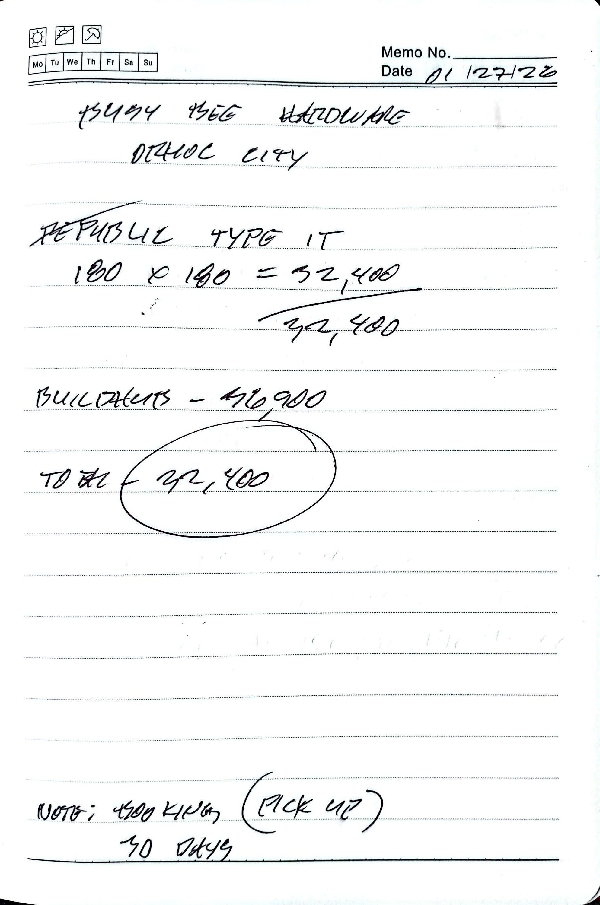 Mo Tu We Th Fr Sa Su
Memo No.
Date 01/27/26
BUSY BEE HARDWARE
ORMOC CITY
REPUBLIC TYPE 1T
180 x 180 = 32,400
32,400
BUILDAMB - 36,900
TOTAL - 32,400
NOTE: BOOKING (PICK UP)
30 DAYS